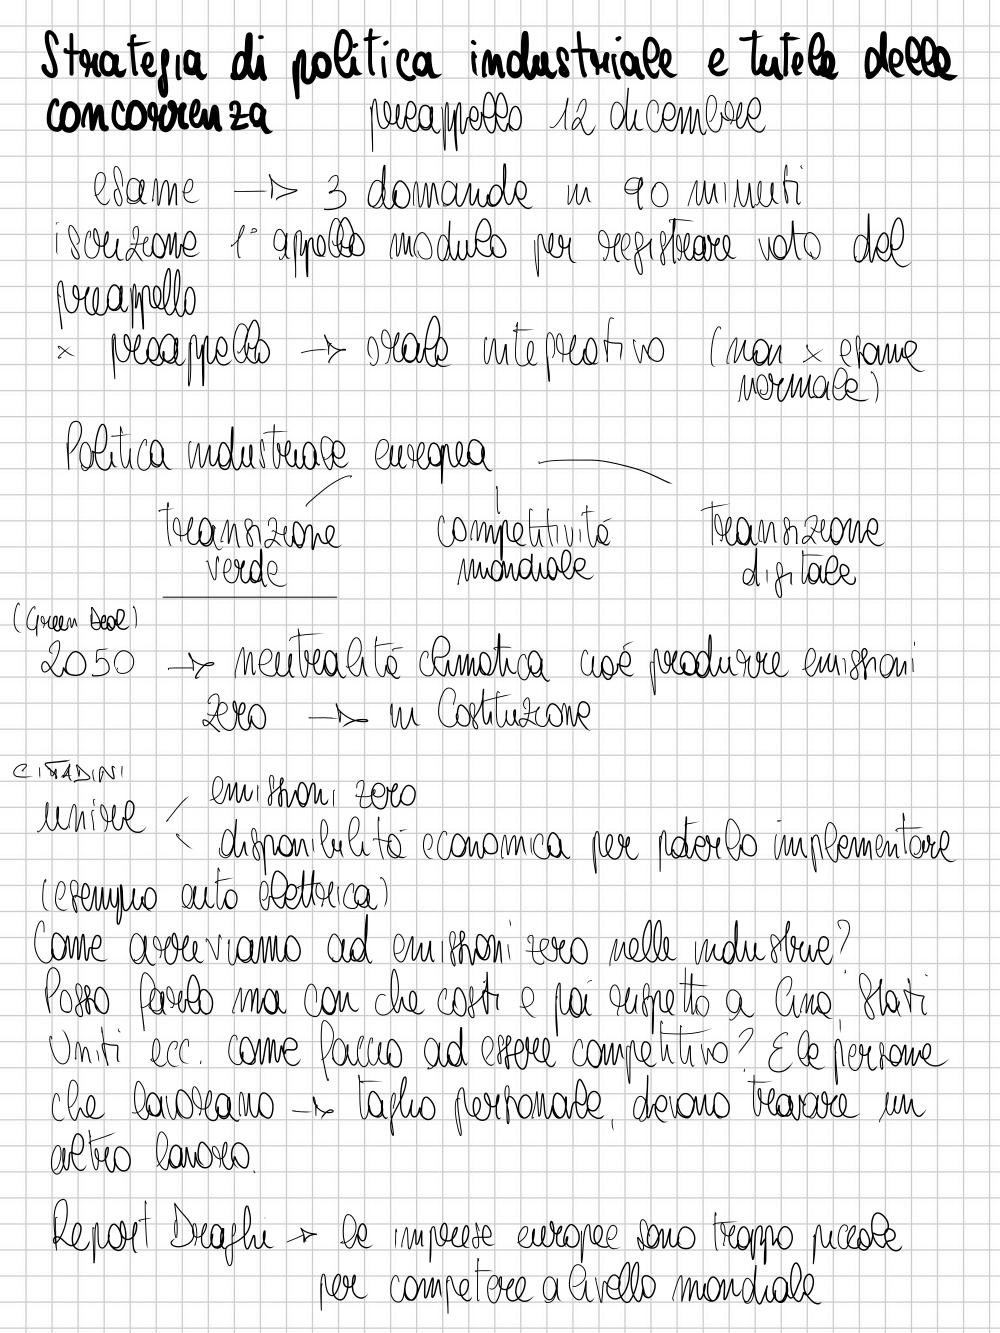 Strategia di politica industriale e tutela della
concorrenza preappello 12 dicembre
esame → 3 domande in 90 minuti
iscrizione 1° appello modulo per registrare voto del
preappello
x preappello → orale integrativo (non x esame
normale)
Politica industriale europea
transizione competitività transizione
verde mondiale digitale
(Green Deal)
2050 → neutralità climatica cioè produrre emissioni
zero → in Costituzione
CITTADINI
unire emissioni zero
disponibilità economica per poterlo implementare
(esempio auto elettrica)
Come arriviamo ad emissioni zero nelle industrie?
Posso farlo ma con che costi e poi rispetto a Cina, Stati
Uniti ecc. come faccio ad essere competitivo? E le persone
che lavorano → taglio personale, devono trovare un
altro lavoro.
Report Draghi → le imprese europee sono troppo piccole
per competere a livello mondiale